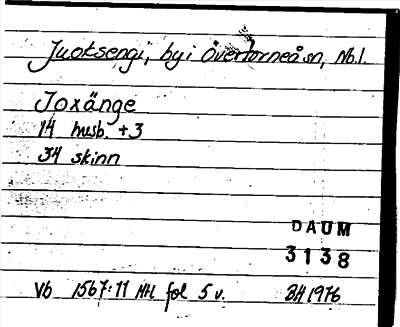 Juoksengi, by i Övertorneå sn, Nb.l.
Joxänge
14 husb. +3
34 skinn
DAUM
3138
Vb 1567:11 Mtl fol 5 v. BH 1976